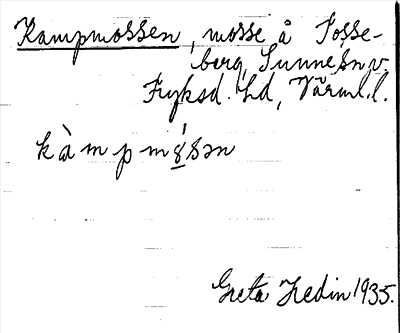 Kampmossen, mosse å Tosse-
berg, Sunne sn v.
Fryksd. hd, Värml. l.
kàmpmósən
Greta Hedin 1935.